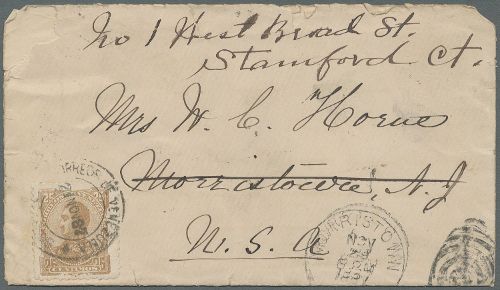 No 1 West Broad St.
Stamford Ct.
Mrs W. C. Horne
Morristown, N.J
U.S.A
CORREOS DE VENEZUELA
MORRISTOWN
NOV
CENTIMOS